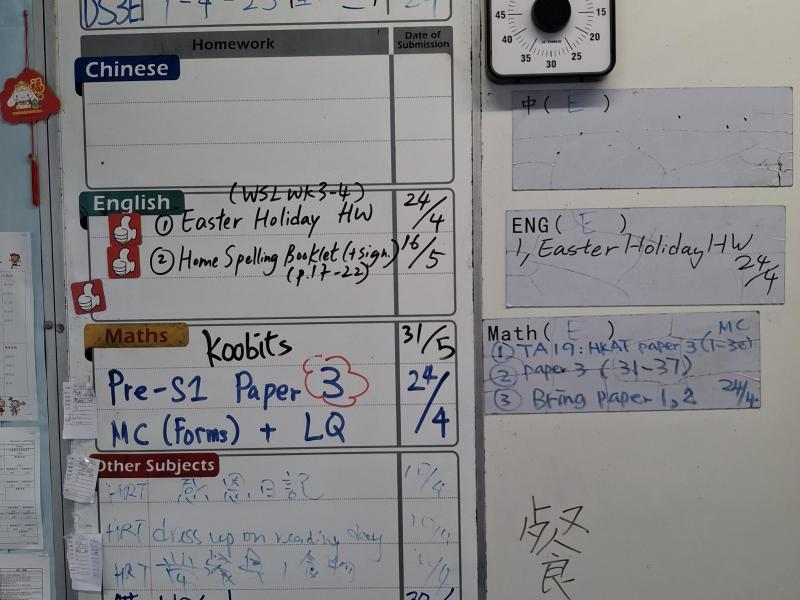 DS3E 1-4-25
24
Homework
Date of Submission
Chinese
English
(WSL WK3-4)
① Easter Holiday HW 24/4
② Home Spelling Booklet (+sign.) 16/5
(p.17-22)
Maths
Koobits 31/5
Pre-S1 Paper 3 24/4
MC (Forms) + LQ
Other Subjects
HRT 感恩日記 10/4
HRT dress up on reading day 10/4
HRT
45 15
40 20
35 30 25
中( E )
ENG( E )
1, Easter Holiday HW
24/4
Math( E ) MC
① TA19: HKAT paper 3 (1-30)
② paper 3 (31-37)
③ Bring paper 1, 2 24/4
餐
福